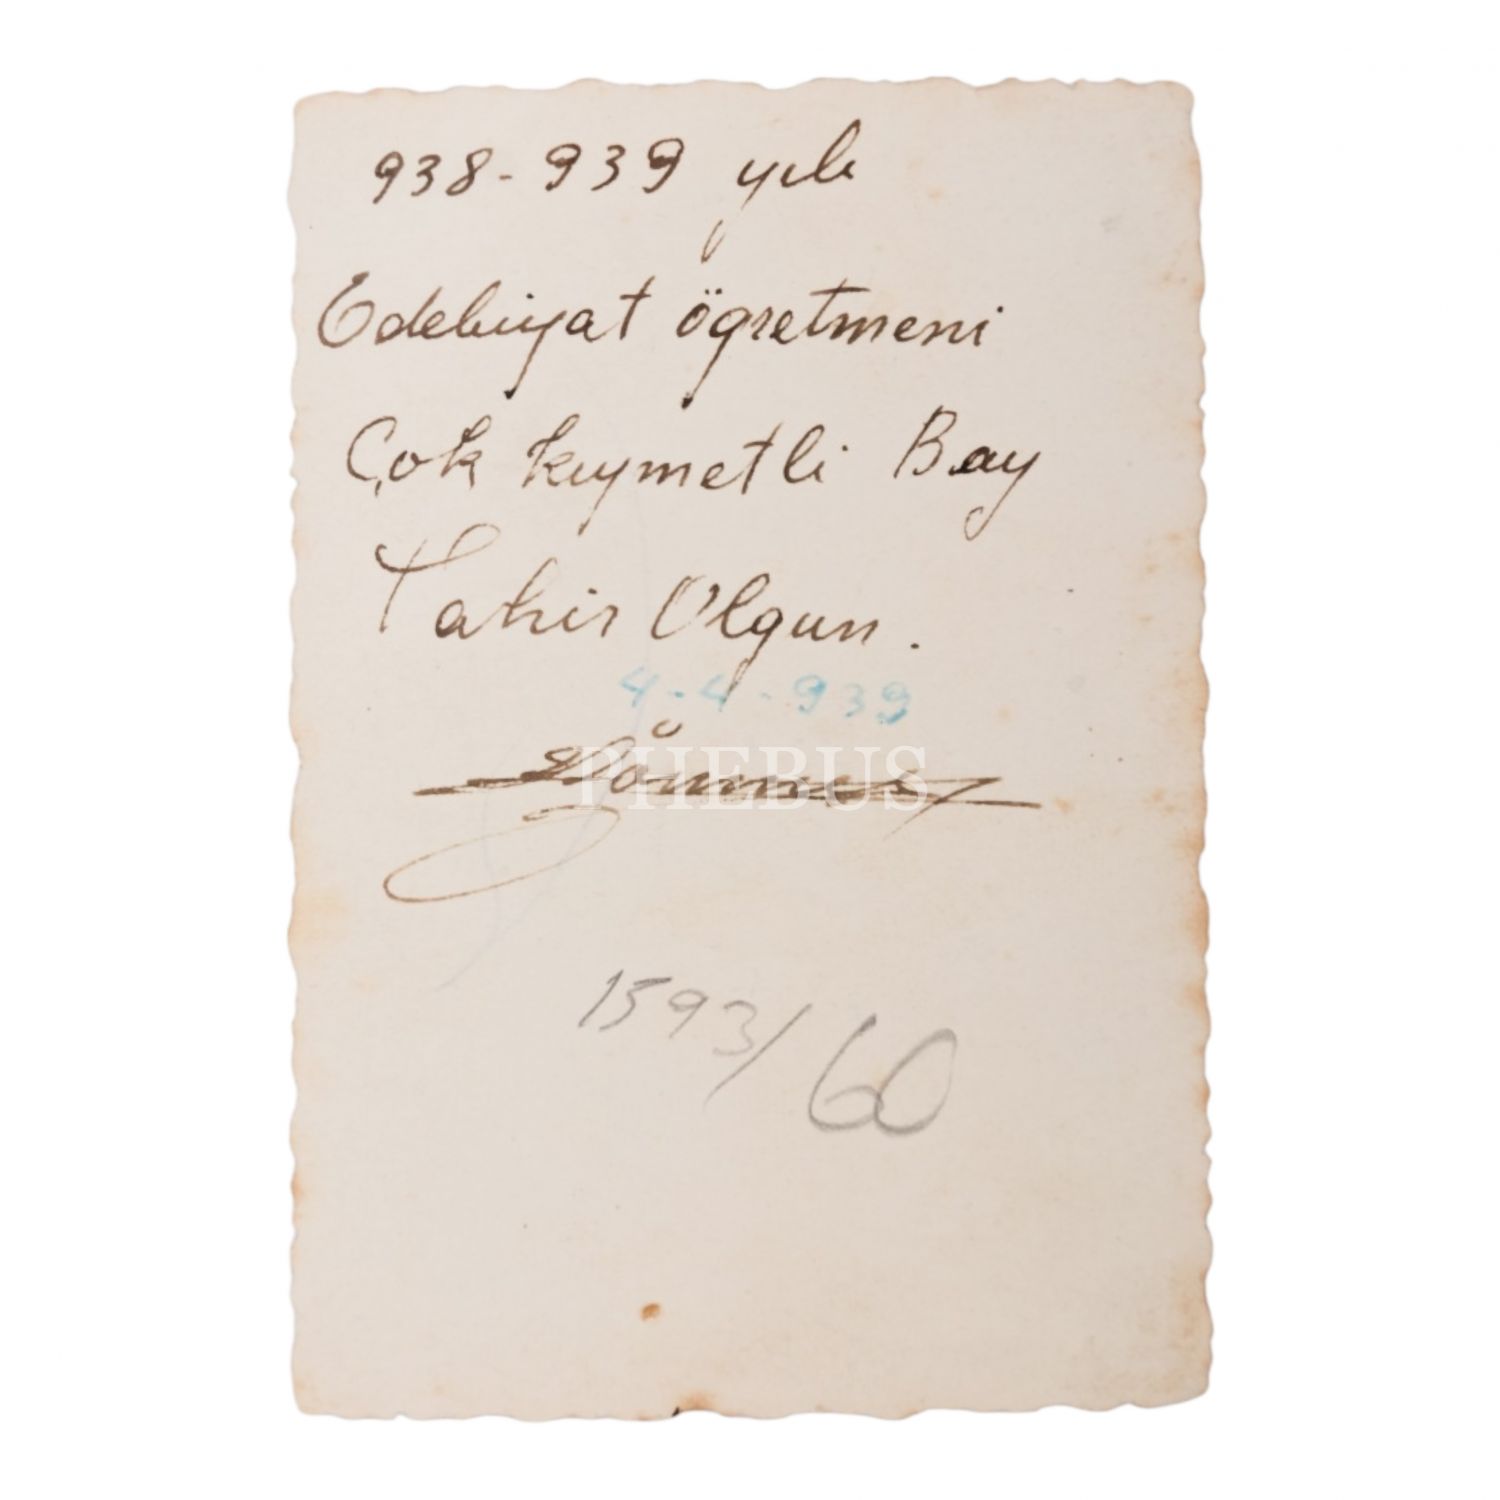 938-939 yılı
Edebiyat öğretmeni
Çok kıymetli Bay
Tahir Olgun.
4-4-939
PHEBUS
1593/60